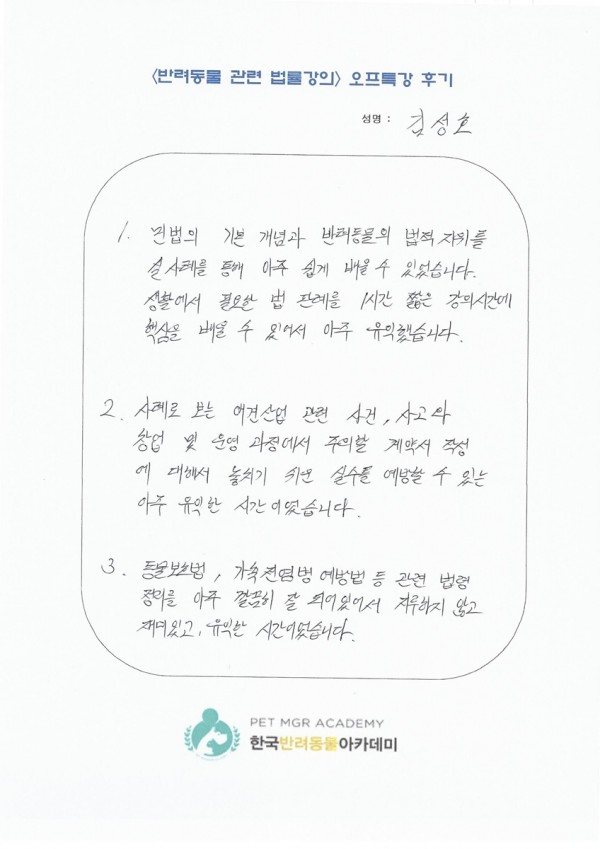 <반려동물 관련 법률강의> 오프특강 후기
성명 : 김성호
1. 민법의 기본 개념과 반려동물의 법적 지위를
실사례를 통해 아주 쉽게 배울 수 있었습니다.
생활에서 필요한 법 판례를 1시간 짧은 강의시간에
핵심을 배울 수 있어서 아주 유익했습니다.
2. 사례로 보는 애견산업 관련 사건, 사고와
창업 및 운영 과정에서 주의할 계약서 작성
에 대해서 놓치기 쉬운 실수를 예방할 수 있는
아주 유익한 시간이었습니다.
3. 동물보호법, 가축전염병 예방법 등 관련 법령
정리를 아주 깔끔히 잘 되어있어서 지루하지 않고
재미있고, 유익한 시간이었습니다.
PET MGR ACADEMY
한국반려동물아카데미